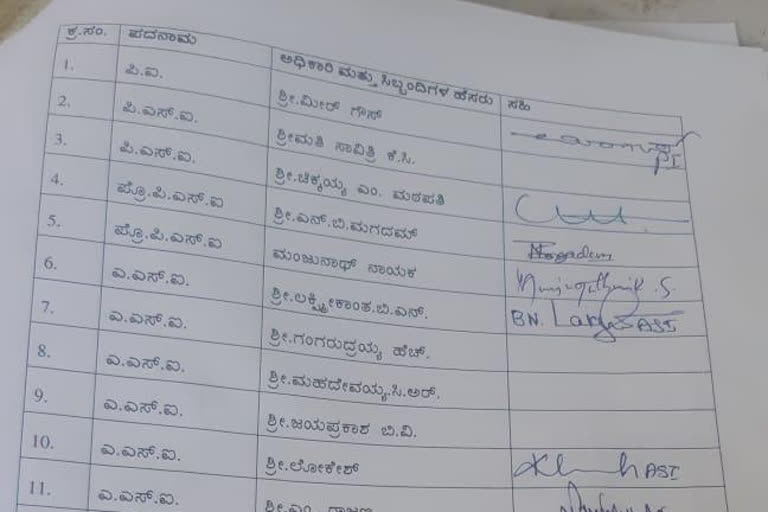 ಕ್ರ.ಸಂ. ಪದನಾಮ ಅಧಿಕಾರಿ ಮತ್ತು ಸಿಬ್ಬಂದಿಗಳ ಹೆಸರು ಸಹಿ
1. ಪಿ.ಐ. ಶ್ರೀ.ಮೀರ್ ಗೌಸ್ PI
2. ಪಿ.ಎಸ್.ಐ. ಶ್ರೀಮತಿ ಸಾವಿತ್ರಿ ಕೆ.ಸಿ.
3. ಪಿ.ಎಸ್.ಐ. ಶ್ರೀ.ಚಿಕ್ಕಯ್ಯ ಎಂ. ಮಠಪತಿ
4. ಪ್ರೊ.ಪಿ.ಎಸ್.ಐ ಶ್ರೀ.ಎನ್.ಬಿ.ಮಗದಮ್
5. ಪ್ರೊ.ಪಿ.ಎಸ್.ಐ ಮಂಜುನಾಥ್ ನಾಯಕ
6. ಎ.ಎಸ್.ಐ. ಶ್ರೀ.ಲಕ್ಷ್ಮೀಕಾಂತ.ಬಿ.ಎನ್. BN. ASI
7. ಎ.ಎಸ್.ಐ. ಶ್ರೀ.ಗಂಗರುದ್ರಯ್ಯ ಹೆಚ್.
8. ಎ.ಎಸ್.ಐ. ಶ್ರೀ.ಮಹದೇವಯ್ಯ.ಸಿ.ಆರ್.
9. ಎ.ಎಸ್.ಐ. ಶ್ರೀ.ಜಯಪ್ರಕಾಶ ಬಿ.ವಿ.
10. ಎ.ಎಸ್.ಐ. ಶ್ರೀ.ಲೋಕೇಶ್ ASI
11. ಎ.ಎಸ್.ಐ. ಶ್ರೀ.ಎಂ.